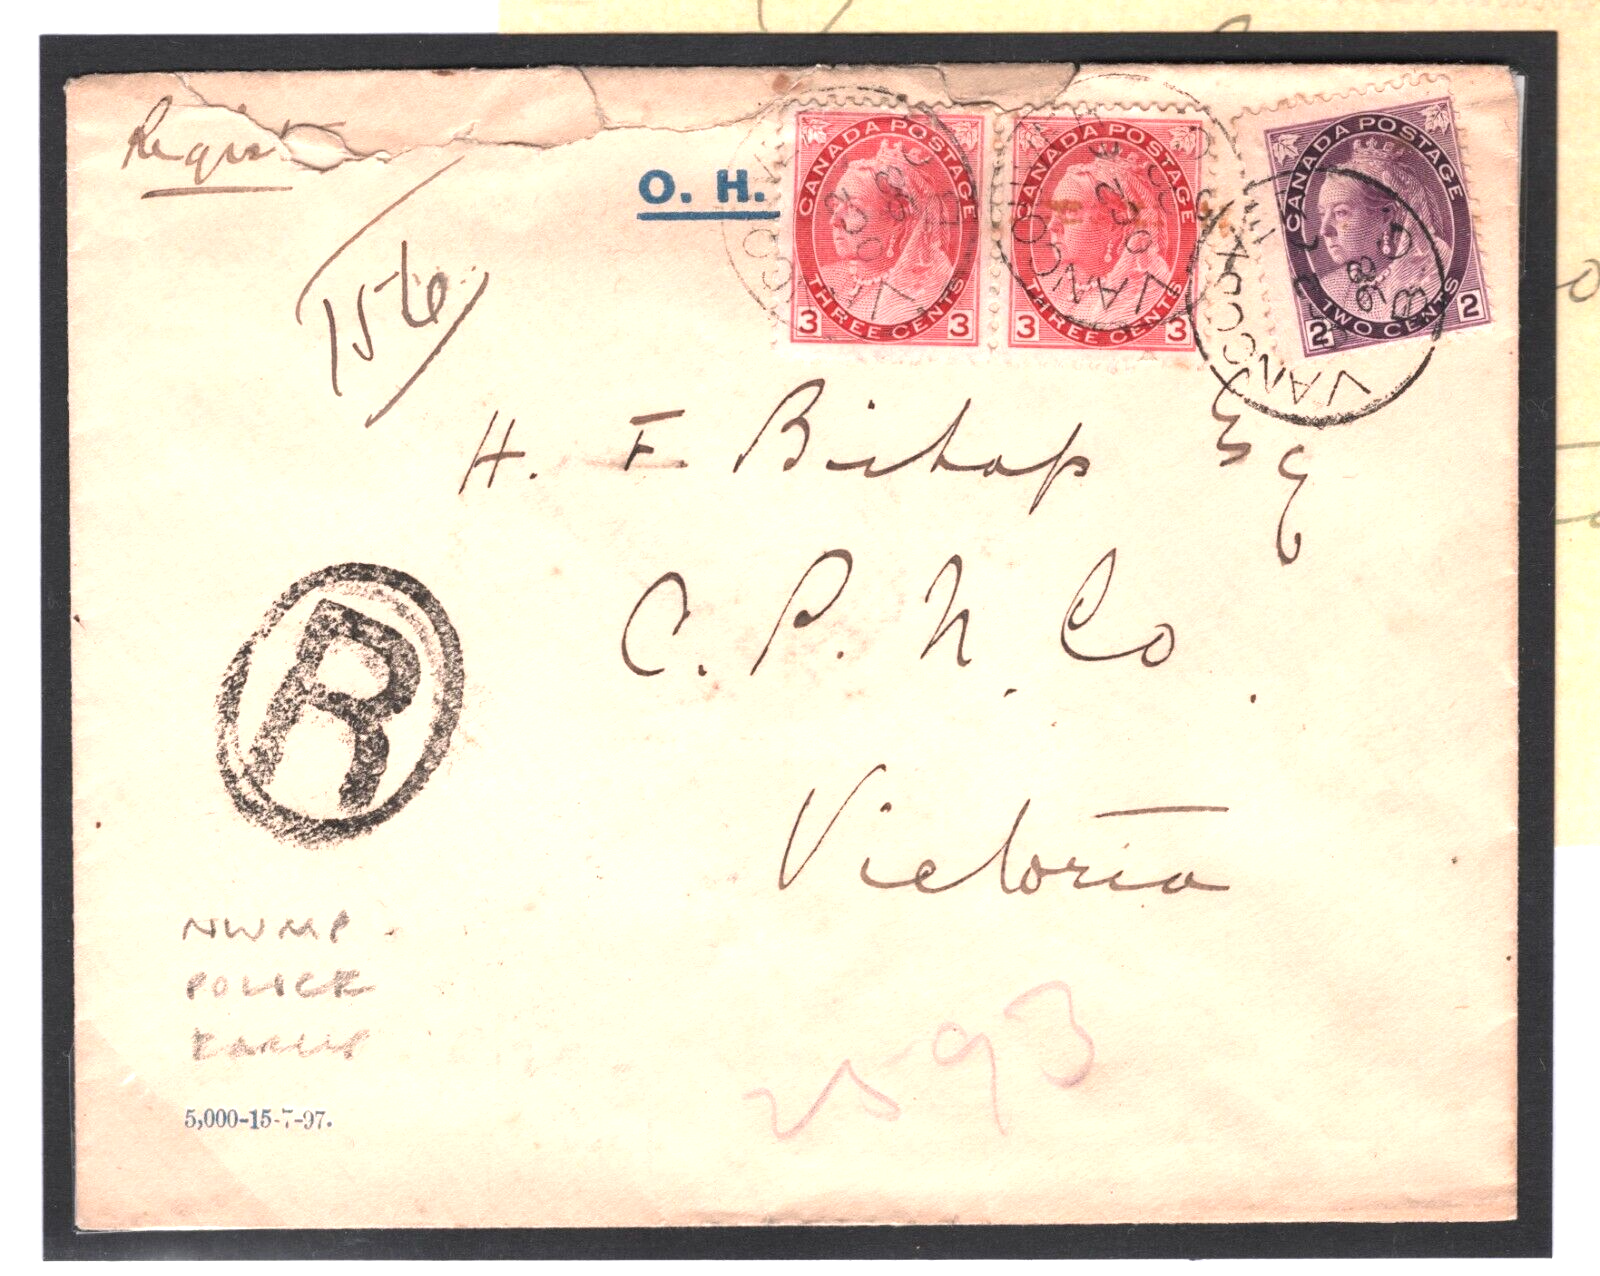 Regist
O. H.
156
CANADA POSTAGE
THREE CENTS
3 3
CANADA POSTAGE
THREE CENTS
3 3
CANADA POSTAGE
TWO CENTS
2 2
VANCOUVER
OC 2
98
B.C.
H. F. Bishop Esq
C. P. N. Co.
Victoria
R
NWMP
POLICE
2593
5,000-15-7-97.